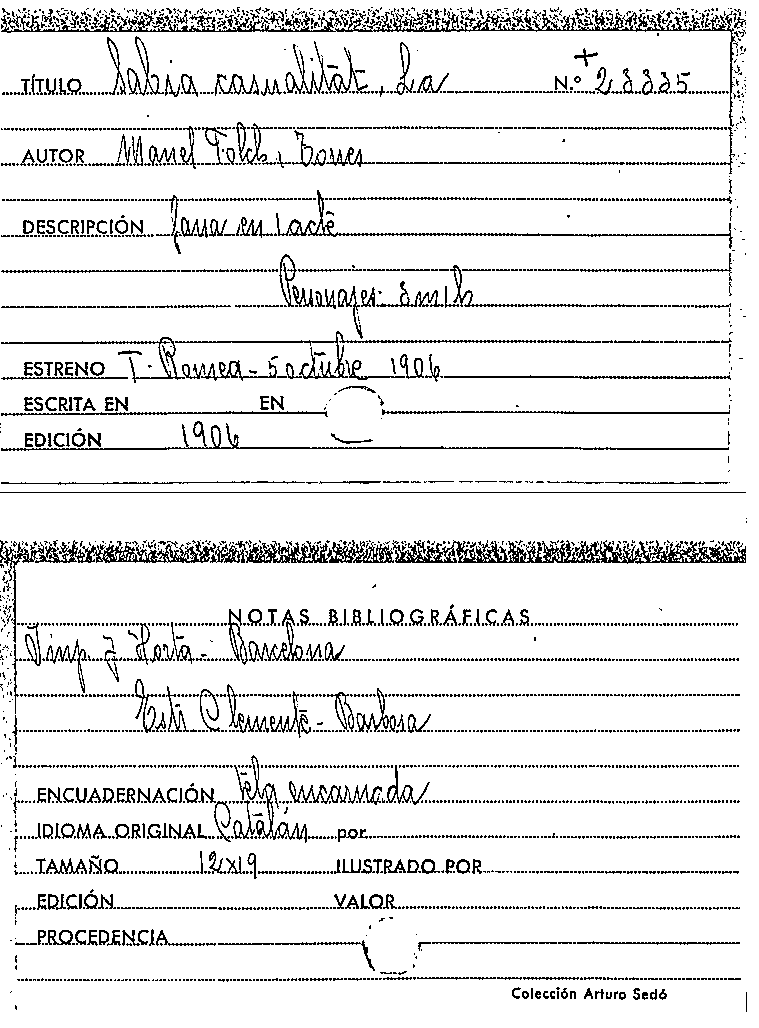 TÍTULO Sabia casualitat, La N.º + 23335
AUTOR Manel Folch i Torres
DESCRIPCIÓN farsa en 1 acte
Personajes: 3 m 1 h
ESTRENO T. Romea - 5 octubre 1906
ESCRITA EN EN
EDICIÓN 1906
NOTAS BIBLIOGRÁFICAS
Imp J Horta - Barcelona
Clemente - Barbosa
ENCUADERNACIÓN tela encarnada
IDIOMA ORIGINAL Catalán por
TAMAÑO 12x19 ILUSTRADO POR
EDICIÓN VALOR
PROCEDENCIA
Colección Arturo Sedó